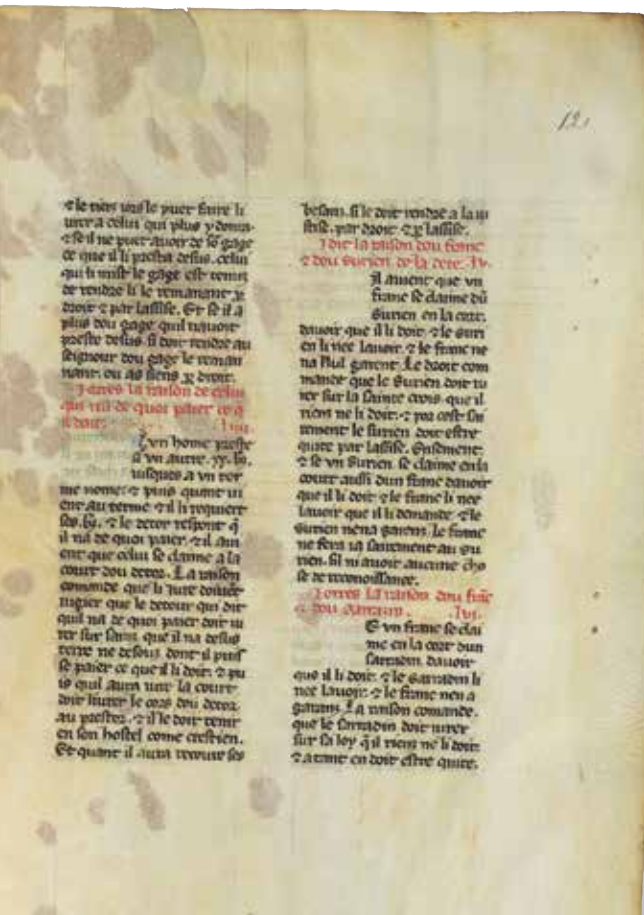 121
⁊ le tiers uos le puet faire li
urer a celui qui plus y donra.
⁊ se il ne puet auoir de sō gage
ce que il li presta desus. celui
qui li mist le gage est tenu
de rendre li le remanant ꝑ
droit ⁊ par lassise. Et se il a
plus dou gage quil nauoit
preste desus. si doit rendre au
seignour dou gage le reman
nant. ou as siens ꝑ droit.
Iorres la raison de celui
qui na de quoi paier ce q̄
il doit. .liiii.
vn home preste
a vn autre .xx. bz.
iusques a vn ter
me nome. ⁊ puis quant ui
ent au terme ⁊ il li requiert
ses .bz. ⁊ le detor respont q̄
il na de quoi paier. ⁊ il aui
ent que celui se claime a la
court dou detor. La raison
comande que li iure doiuēt
iugier que le detour qui dit
quil na de quoi paier doit iu
rer sur sains que il na desus
terre ne desous dont il puisse
se paier ce que il li doit. ⁊ pu
is quil aura iure la court
doit liurer le cors dou detor
au prestor. ⁊ il le doit tenir
en son hostel come crestien.
Et quant il aura recouure ses
besans. si le doit rendre a la iu
stise. par droit ⁊ ꝑ lassise.
I dit la raison dou franc
⁊ dou surien de la dete. .lv.
il auient que vn
franc se claime dū
surien en la cort.
dauoir que il li doit. ⁊ le suri
en li nee lauoir. ⁊ le franc ne
na Nul garent. Le droit com
mande que le Surien doit iu
rer sur la sainte crois que il
riens ne li doit. ⁊ por cest sai
rement le surien doit estre
quite par lassise. Ensement
⁊ se vn Surien se claime en la
court aussi dun franc dauoir
que il li doit ⁊ le franc li nee
lauoir que il li demande ⁊ le
surien nena garens. Le franc
ne fera ia sairement au su
rien. sil ni auoit aucune cho
se de reconoissance.
Iorres la raison dou frāc
⁊ dou sarrasin. .lvi.
E vn franc se clai
me en la cort dun
sarrasin dauoir
que il li doit. ⁊ le sarrasin li
nee lauoir. ⁊ le franc nen a
garans. La raison comande.
que le sarrasin doit iurer
sur sa loy q̄ il riens ne li doit
⁊ atant en doit estre quite.